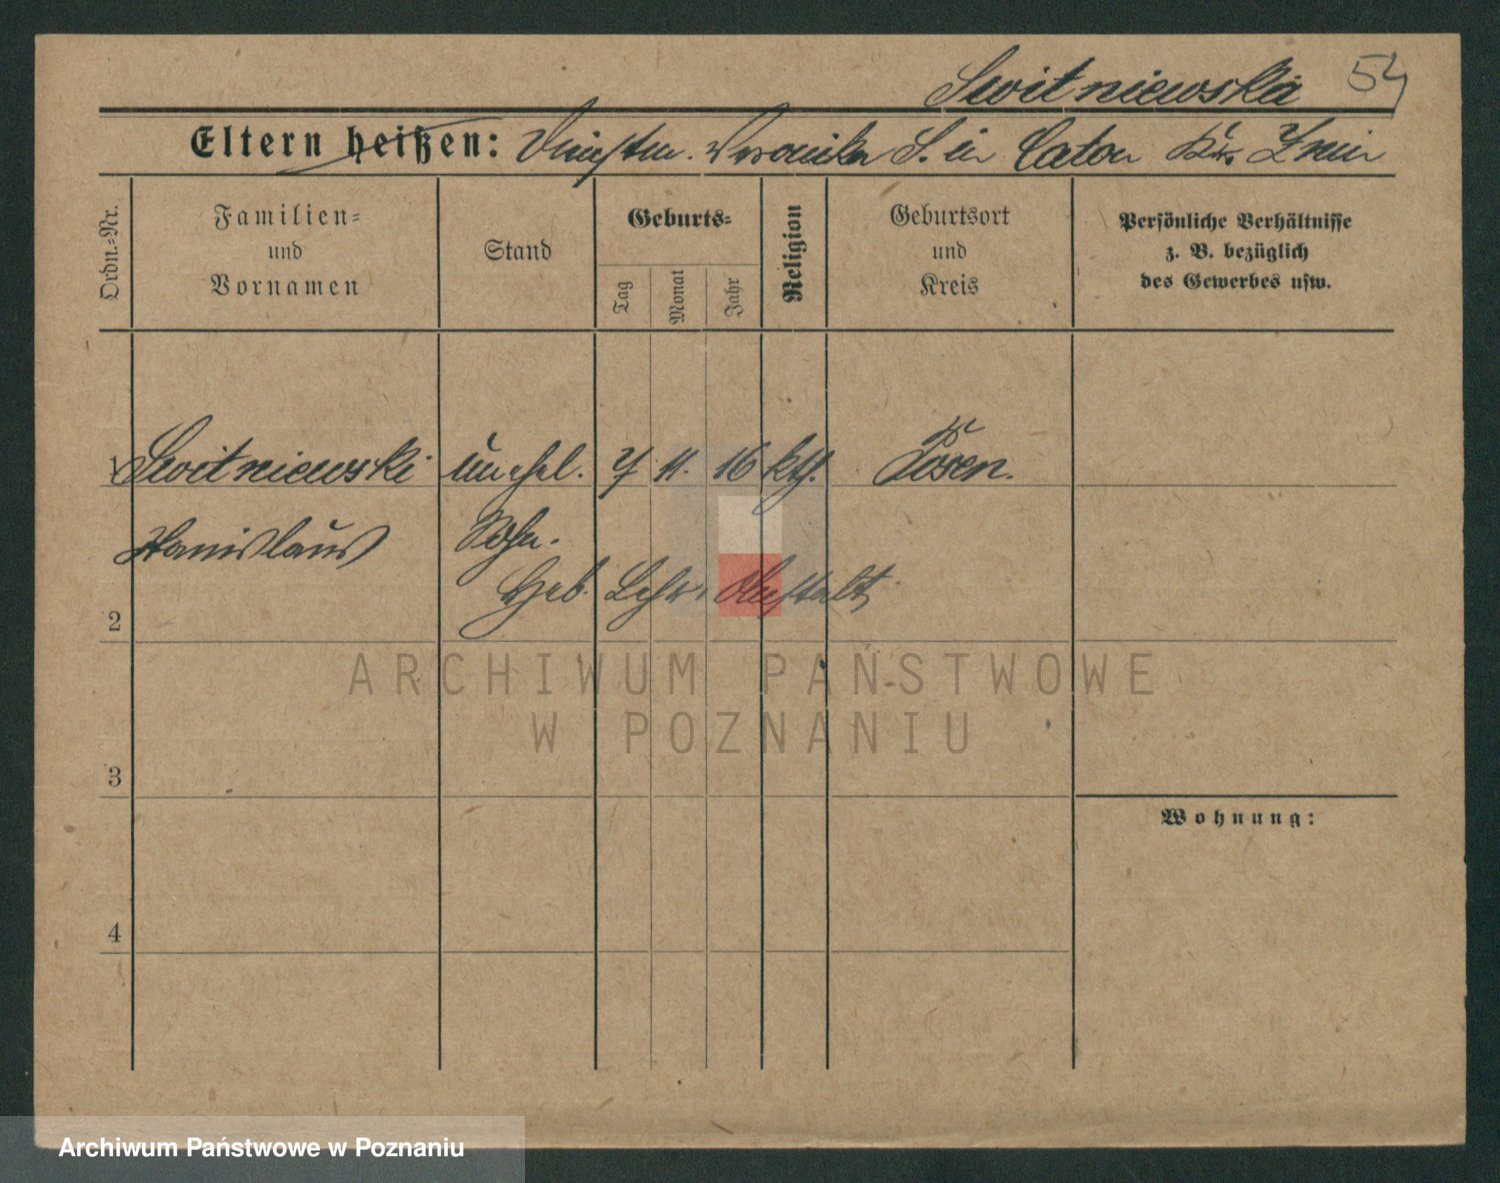 Switniewska 54
Eltern heißen: Dienstm. Veronika S. in Caton Kr. Znin
Ordn.-Nr.
Familien-
und
Vornamen
Stand
Geburts-
Tag
Monat
Jahr
Religion
Geburtsort
und
Kreis
Persönliche Verhältnisse
z. B. bezüglich
des Gewerbes usw.
1 Switniewski unehel. 7 11. 16 kth. Posen.
Stanislaus Sohn.
Geb. Lehr-Anstalt
2
ARCHIWUM PAŃSTWOWE
W POZNANIU
3
Wohnung:
4
Archiwum Państwowe w Poznaniu